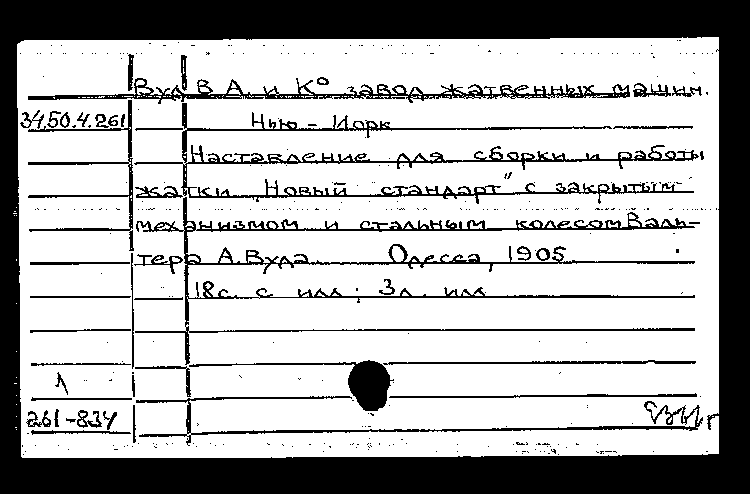 Вуд В А. и К° завод жатвенных машин.
34.50.4.261 Нью-Иорк
Наставление для сборки и работы
жатки "Новый стандарт" с закрытым
механизмом и стальным колесом Валь-
тера А. Вуда. Одесса, 1905
18с. с илл; 3л. илл
261-834